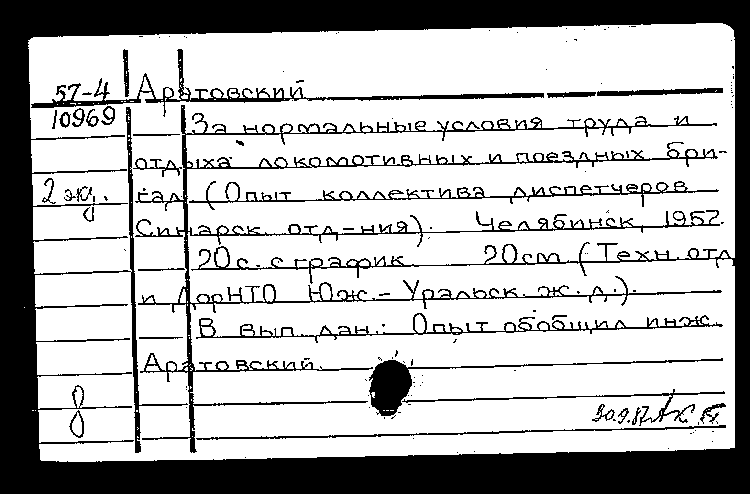 57-4 Аратовский
10969 За нормальные условия труда и
отдыха локомотивных и поездных бри-
2 экз. гад (Опыт коллектива диспетчеров
Синарск. отд-ния). Челябинск, 1957.
20с. с график 20см (Техн. отд
и ДорНТО Юж.-Уральск. ж.д.).
В вып. дан.: Опыт обобщил инж.
Аратовский.
8